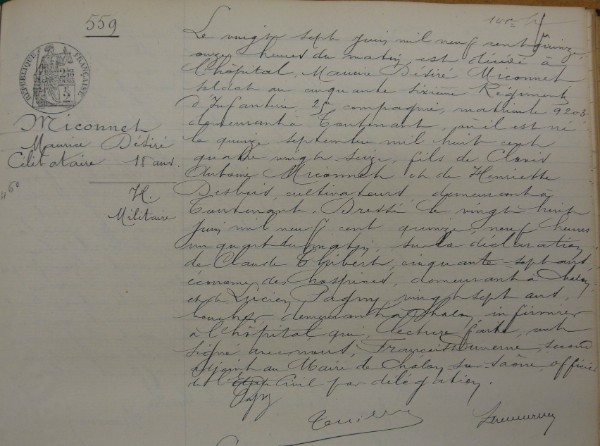 559
RÉPUBLIQUE FRANÇAISE
Miconnet
Maurice Désiré
Célibataire 18 ans
H.
Militaire
Le vingt sept juin mil neuf cent quinze
onze heures du matin est décédé à
l'hôpital, Maurice Désiré Miconnet
soldat au cinquante sixième Régiment
d'Infanterie 25e compagnie, matricule 9203
demeurant à où il est né
le quinze septembre mil huit cent
quatre vingt seize, fils de Clovis
Antoine Miconnet et de Henriette
Desbois, cultivateurs, demeurant à
Dressé le vingt huit
juin mil neuf cent quinze, neuf heures
un quart du matin, sur la déclaration
de Claude Thibert, cinquante sept ans
économe des hospices, demeurant à Chalon
et de Lucien Pagny, vingt sept ans,
demeurant à Chalon, infirmier
à l'hôpital qui, lecture faite, ont
signé avec nous, second
adjoint au Maire de Chalon sur Saône, officier
de l'état civil par délégation.